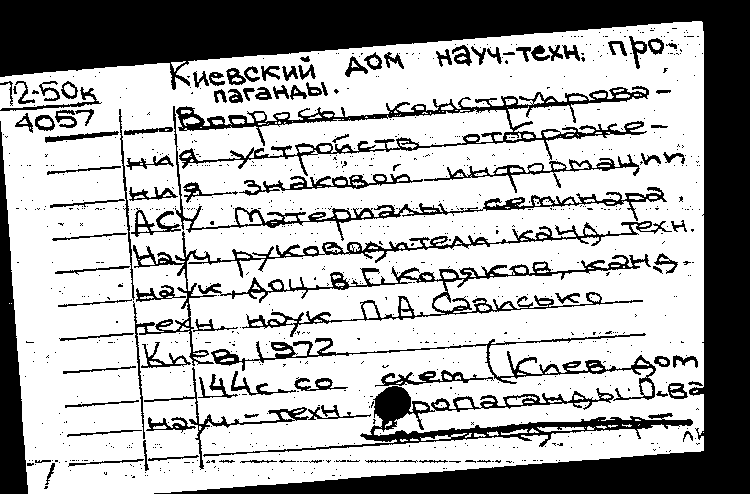 Киевский дом науч.-техн. про-
паганды.
72-50к
4057
Вопросы конструирова-
ния устройств отображе-
ния знаковой информации
АСУ. Материалы семинара.
Науч. руководители: канд. техн.
наук, доц. В.Г. Коряков, канд.
техн. наук П.А. Сависько
Киев, 1972
144с. со схем. (Киев. дом
науч.-техн. пропаганды О-ва